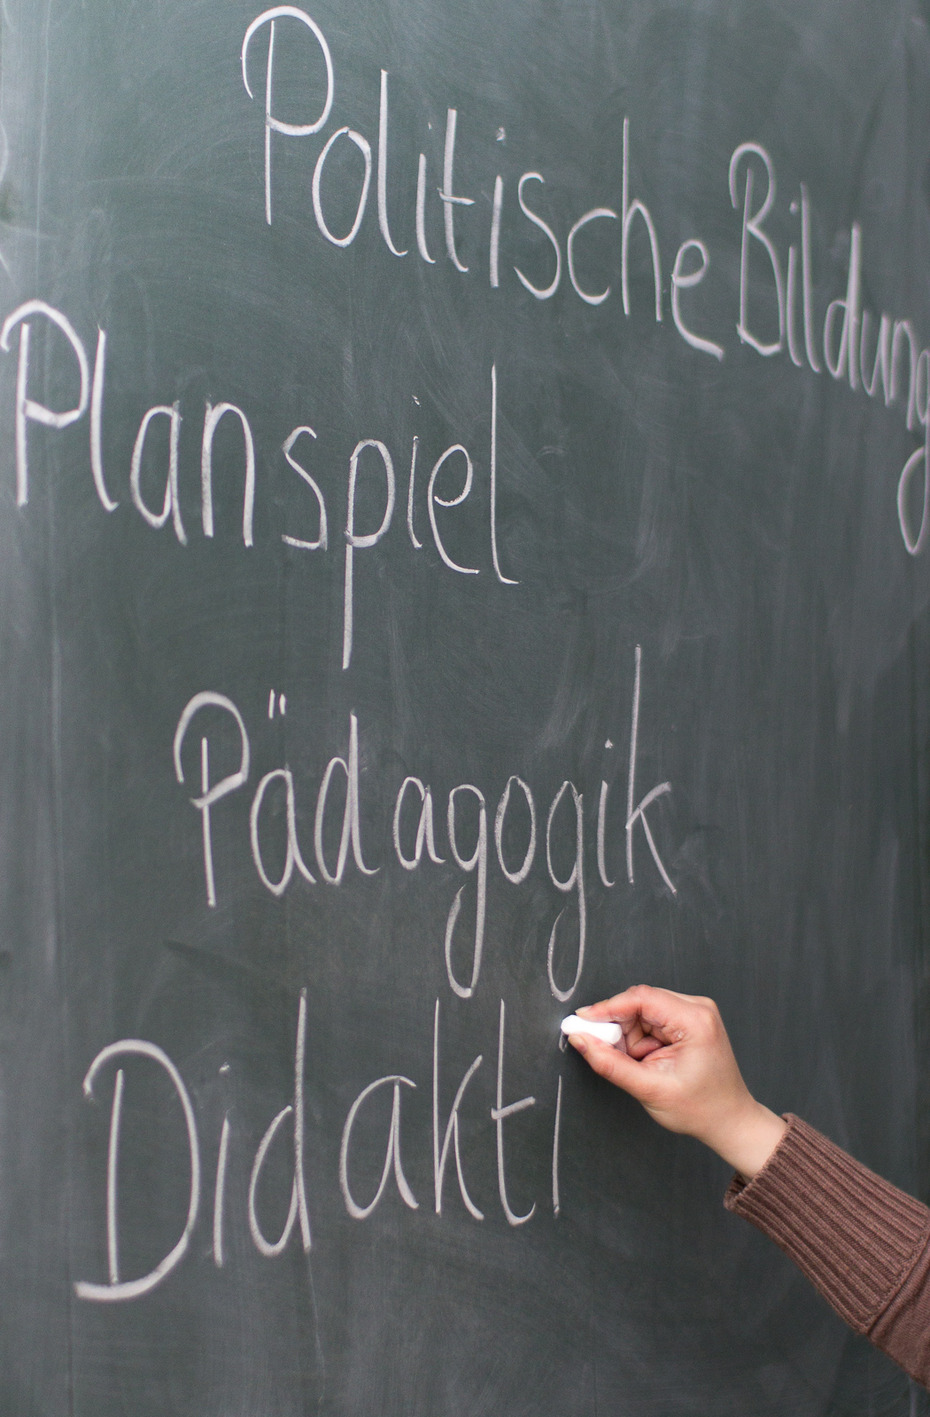 Politische Bildung
Planspiel
Pädagogik
Didakti